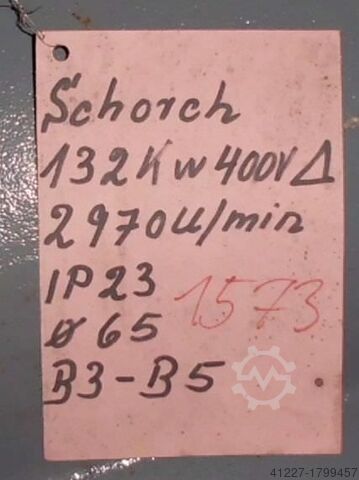 Schorch
132Kw 400V Δ
2970U/min
IP23
ø 65
1573
B3-B5
41227-1799457